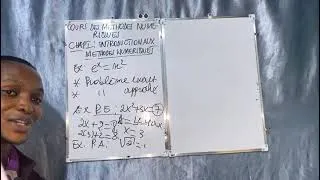 COURS DE METHODES NUME-
RIQUES
CHAP1: INTRODUCTION AUX
METHODES NUMERIQUES
Ex: eˣ = x²
* Problème exact
* " approché
Ex P.E: 2x²+3x=7
2x+2=8
x=3
Ex: P.A: √2 =